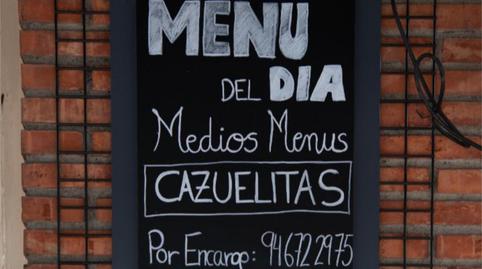 MENU
DEL DIA
Medios Menus
CAZUELITAS
Por Encargo: 94 672 29 75